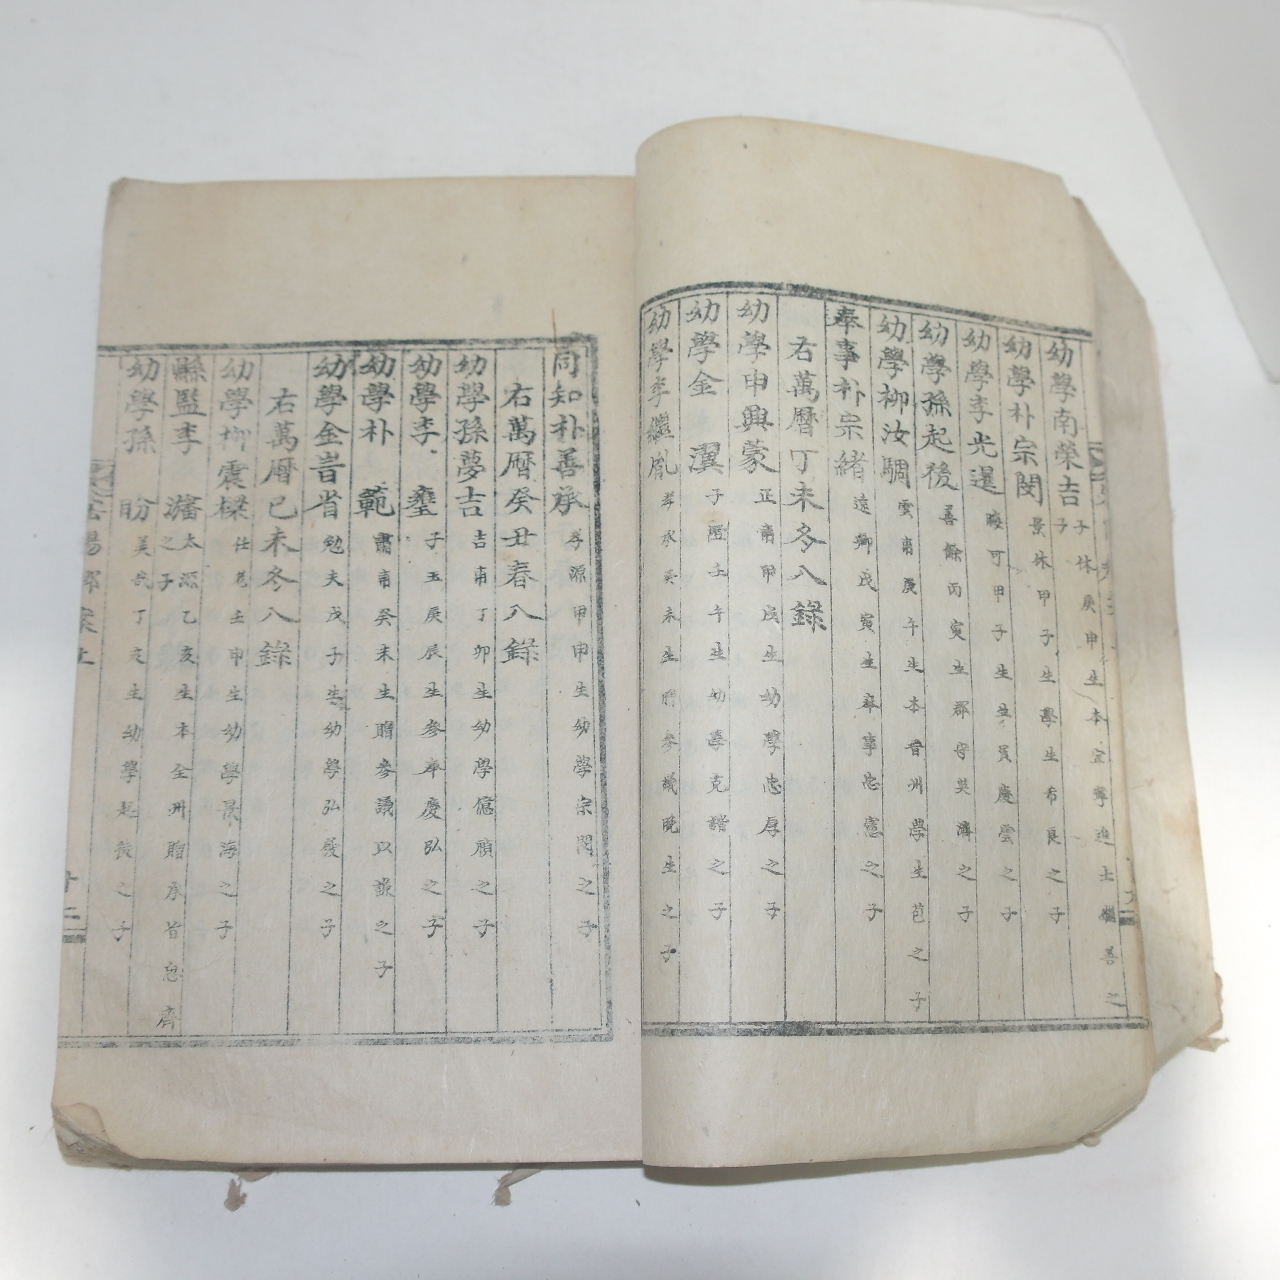 幼學南榮吉 子休庚申生本宜寧進士繼善之子
幼學朴宗閔 景休甲子生學生希良之子
幼學李光暹 晦可甲子生生員慶雲之子
幼學孫起後 善餘丙寅生郡守英濟之子
幼學柳汝騆 雲甫庚午生本晋州學生芑之子
奉事朴宗緖 遠卿戊寅生奉事忠憲之子
右萬曆丁未冬入錄
幼學申興蒙 正甫甲戌生幼學忠厚之子
幼學金瀷 子 壬午生幼學克諧之子
幼學李繼胤 孝承癸未生 參議旣生之子
同知朴善承 孝源甲申生幼學宗閔之子
右萬曆癸丑春入錄
幼學孫夢吉 吉甫丁卯生幼學億顔之子
幼學李瑬 子玉庚辰生參奉慶弘之子
幼學朴範 肅甫癸未生贈參議以謙之子
幼學金旹省 勉夫戊子生幼學弘發之子
右萬曆己未冬入錄
幼學柳震樑 任老壬申生幼學景海之子
縣監李瀋 太源乙亥生本全州贈承旨忠齊之子
幼學孫盼 美哉丁亥生幼學起後之子
陽鄕案上
十二